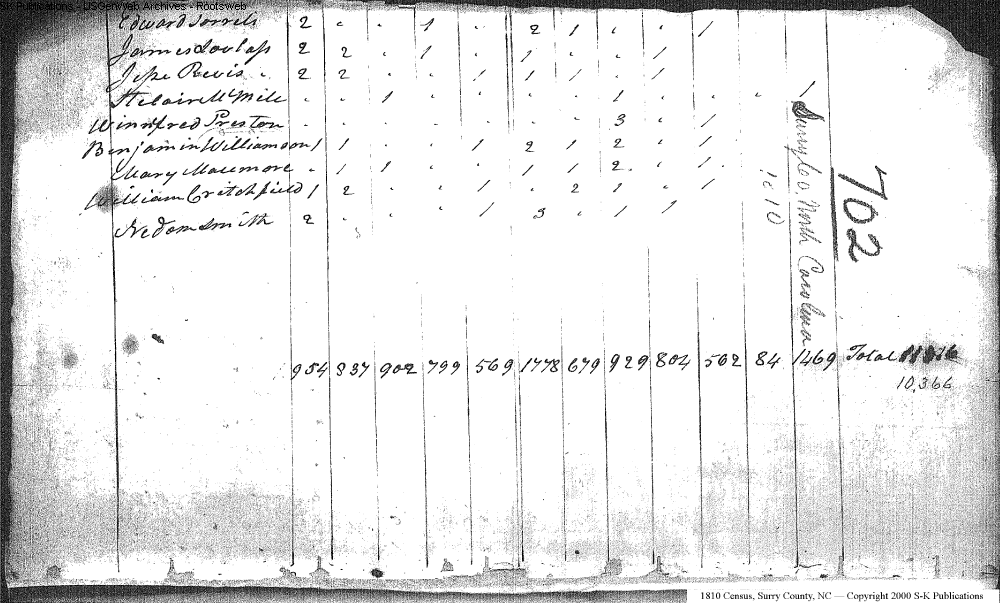 S-K Publications - USGenWeb Archives - Rootsweb
Edward Sorrels 2 " " 1 " 2 1 " " 1
James Lovlass 2 2 " 1 " 1 " " 1
Jesse Revis 2 2 " " 1 1 1 " 1
" " 1 " " " " 1 " " " 1
Winnifred Preston " " " " " " " 3 " 1
Benjamin Williamson 1 1 " " 1 2 1 2 " 1
Mary " 1 1 " " 1 1 2 " 1
William Critchfield 1 2 " " 1 " 2 1 " 1
Nedom Smith 2 " " " 1 3 " 1 1
Surry Co, North Carolina
1810
702
954 837 902 799 569 1778 679 929 804 562 84 1469 Total
10,366
1810 Census, Surry County, NC — Copyright 2000 S-K Publications